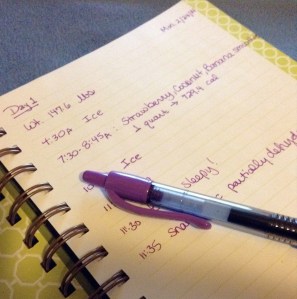 Day 1
Wt. 147.6 lbs
4:30A Ice
7:30-8:45A: Strawberry, Coconut, Banana
1 quart → 729.4 cal
Ice
Sleepy!
11:30
partially dehyd
11:35 Sna